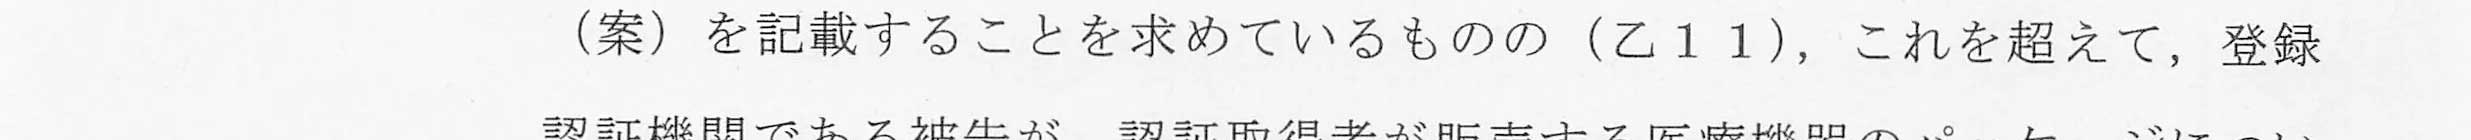 （案）を記載することを求めているものの（乙１１），これを超えて，登録
認証機関である被告が，認証取得者が販売する医療機器のパッケージについ